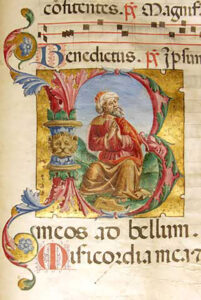 cōfitentes. ps̄ Magnif
Benedictus. ps̄ Ipsum
B
meos ad bellum.
Misericordia mea ⁊